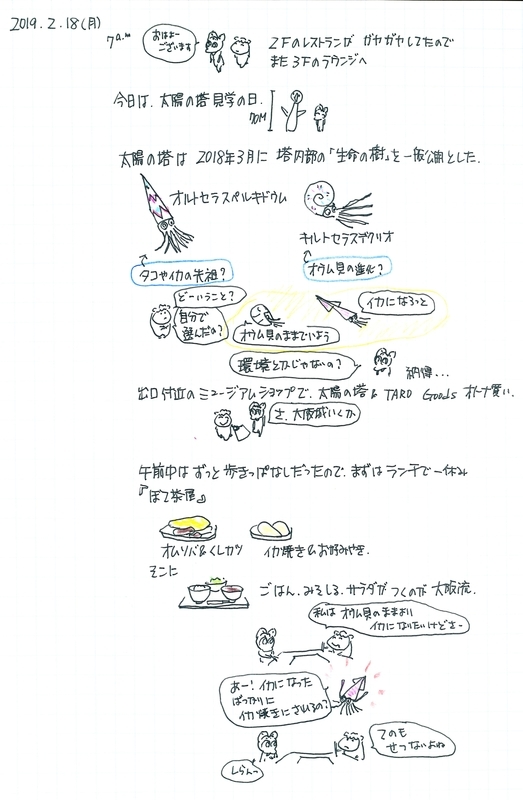 2019.2.18(月)
7a.m
おはよー
ございます
2Fのレストランが ガヤガヤしてたので
また3Fのラウンジへ
今日は、太陽の塔見学の日.
70M
太陽の塔は 2018年3月に 塔内部の「生命の樹」を一般公開とした.
オルトセラスペルキドウム
キルトセラスデクリオ
タコやイカの先祖?
オウム貝の進化?
どーいうこと?
自分で
選んだの?
オウム貝のままでいよう
イカになるっと
環境とかじゃないの?
納得...
出口付近のミュージアムショップで、太陽の塔& TARO Goods オトナ買い.
さ、大阪城いくか
午前中は ずっと歩きっぱなしだったので、まずは ランチで一休み
『ぼて茶屋』
オムソバ&くしカツ
イカ焼き&お好みやき.
そこに
ごはん.みそしる.サラダが つくのが 大阪流.
私は オウム貝のままより
イカになりたいけどさー
あー!イカになった
ばっかりに
イカ焼きにされるの?
てのも
せつないよね
しらんっ